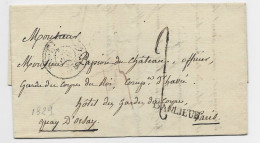 Monsieur
Monsieur Passion de Château, officier,
Garde du Corps du Roi, Comp.ie d'havré
hôtel des Gardes du Corps,
quay D'orsay. Paris
1829
2